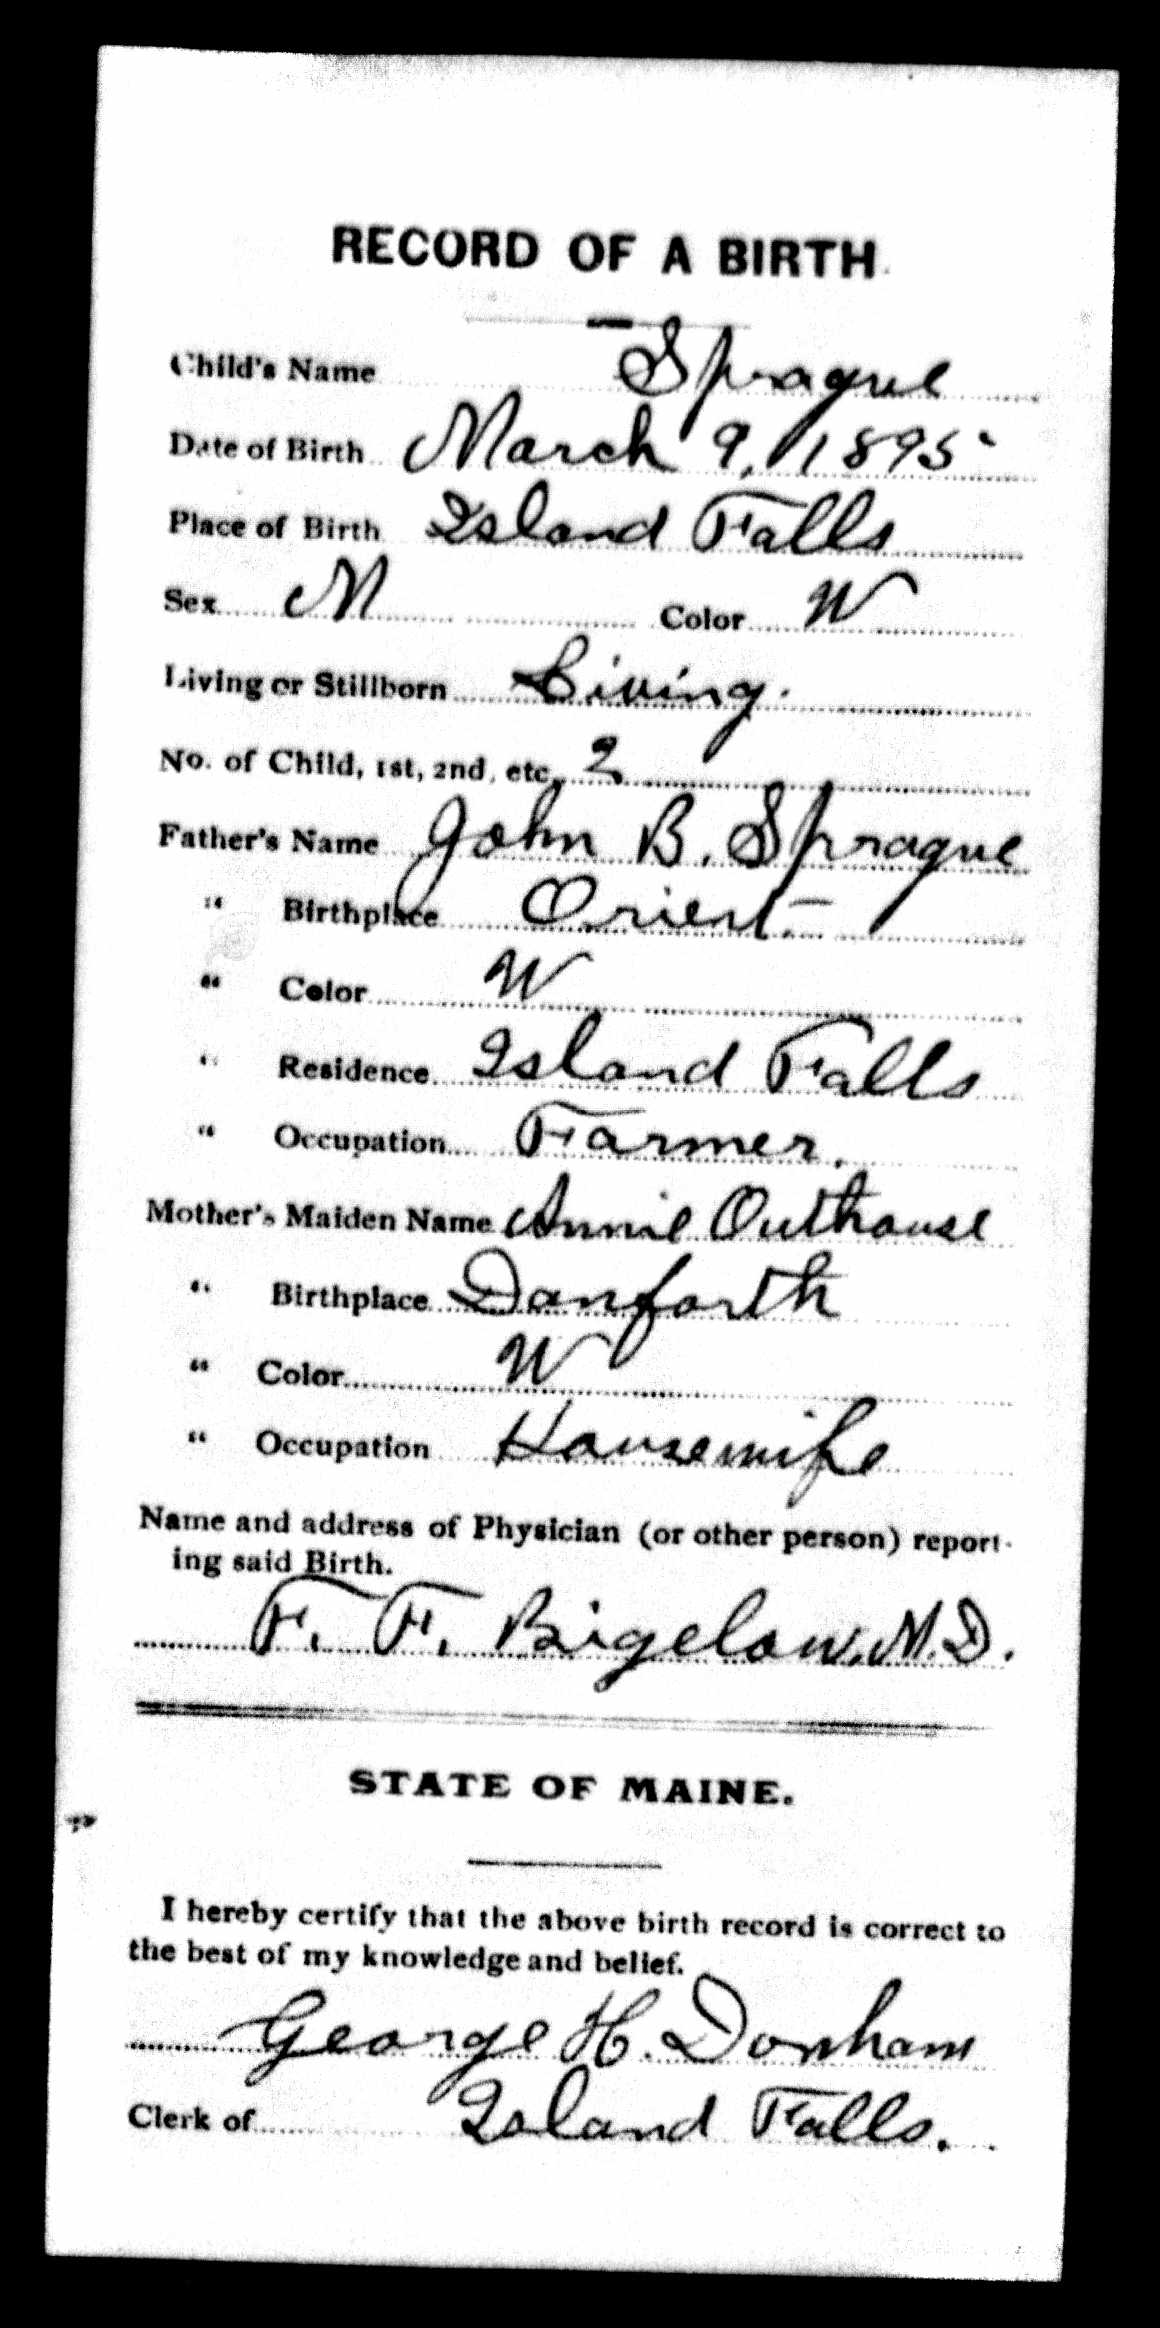 RECORD OF A BIRTH
Child's Name Sprague
Date of Birth March 9, 1895
Place of Birth Island Falls
Sex M Color W
Living or Stillborn Living.
No. of Child, 1st, 2nd, etc. 2
Father's Name John B. Sprague
" Birthplace Orient
" Color W
" Residence Island Falls
" Occupation Farmer.
Mother's Maiden Name Annie Outhouse
" Birthplace Danforth
" Color W
" Occupation Housewife
Name and address of Physician (or other person) report-
ing said Birth.
F. F. Bigelow, M.D.
STATE OF MAINE.
I hereby certify that the above birth record is correct to
the best of my knowledge and belief.
George H. Donham
Clerk of Island Falls.